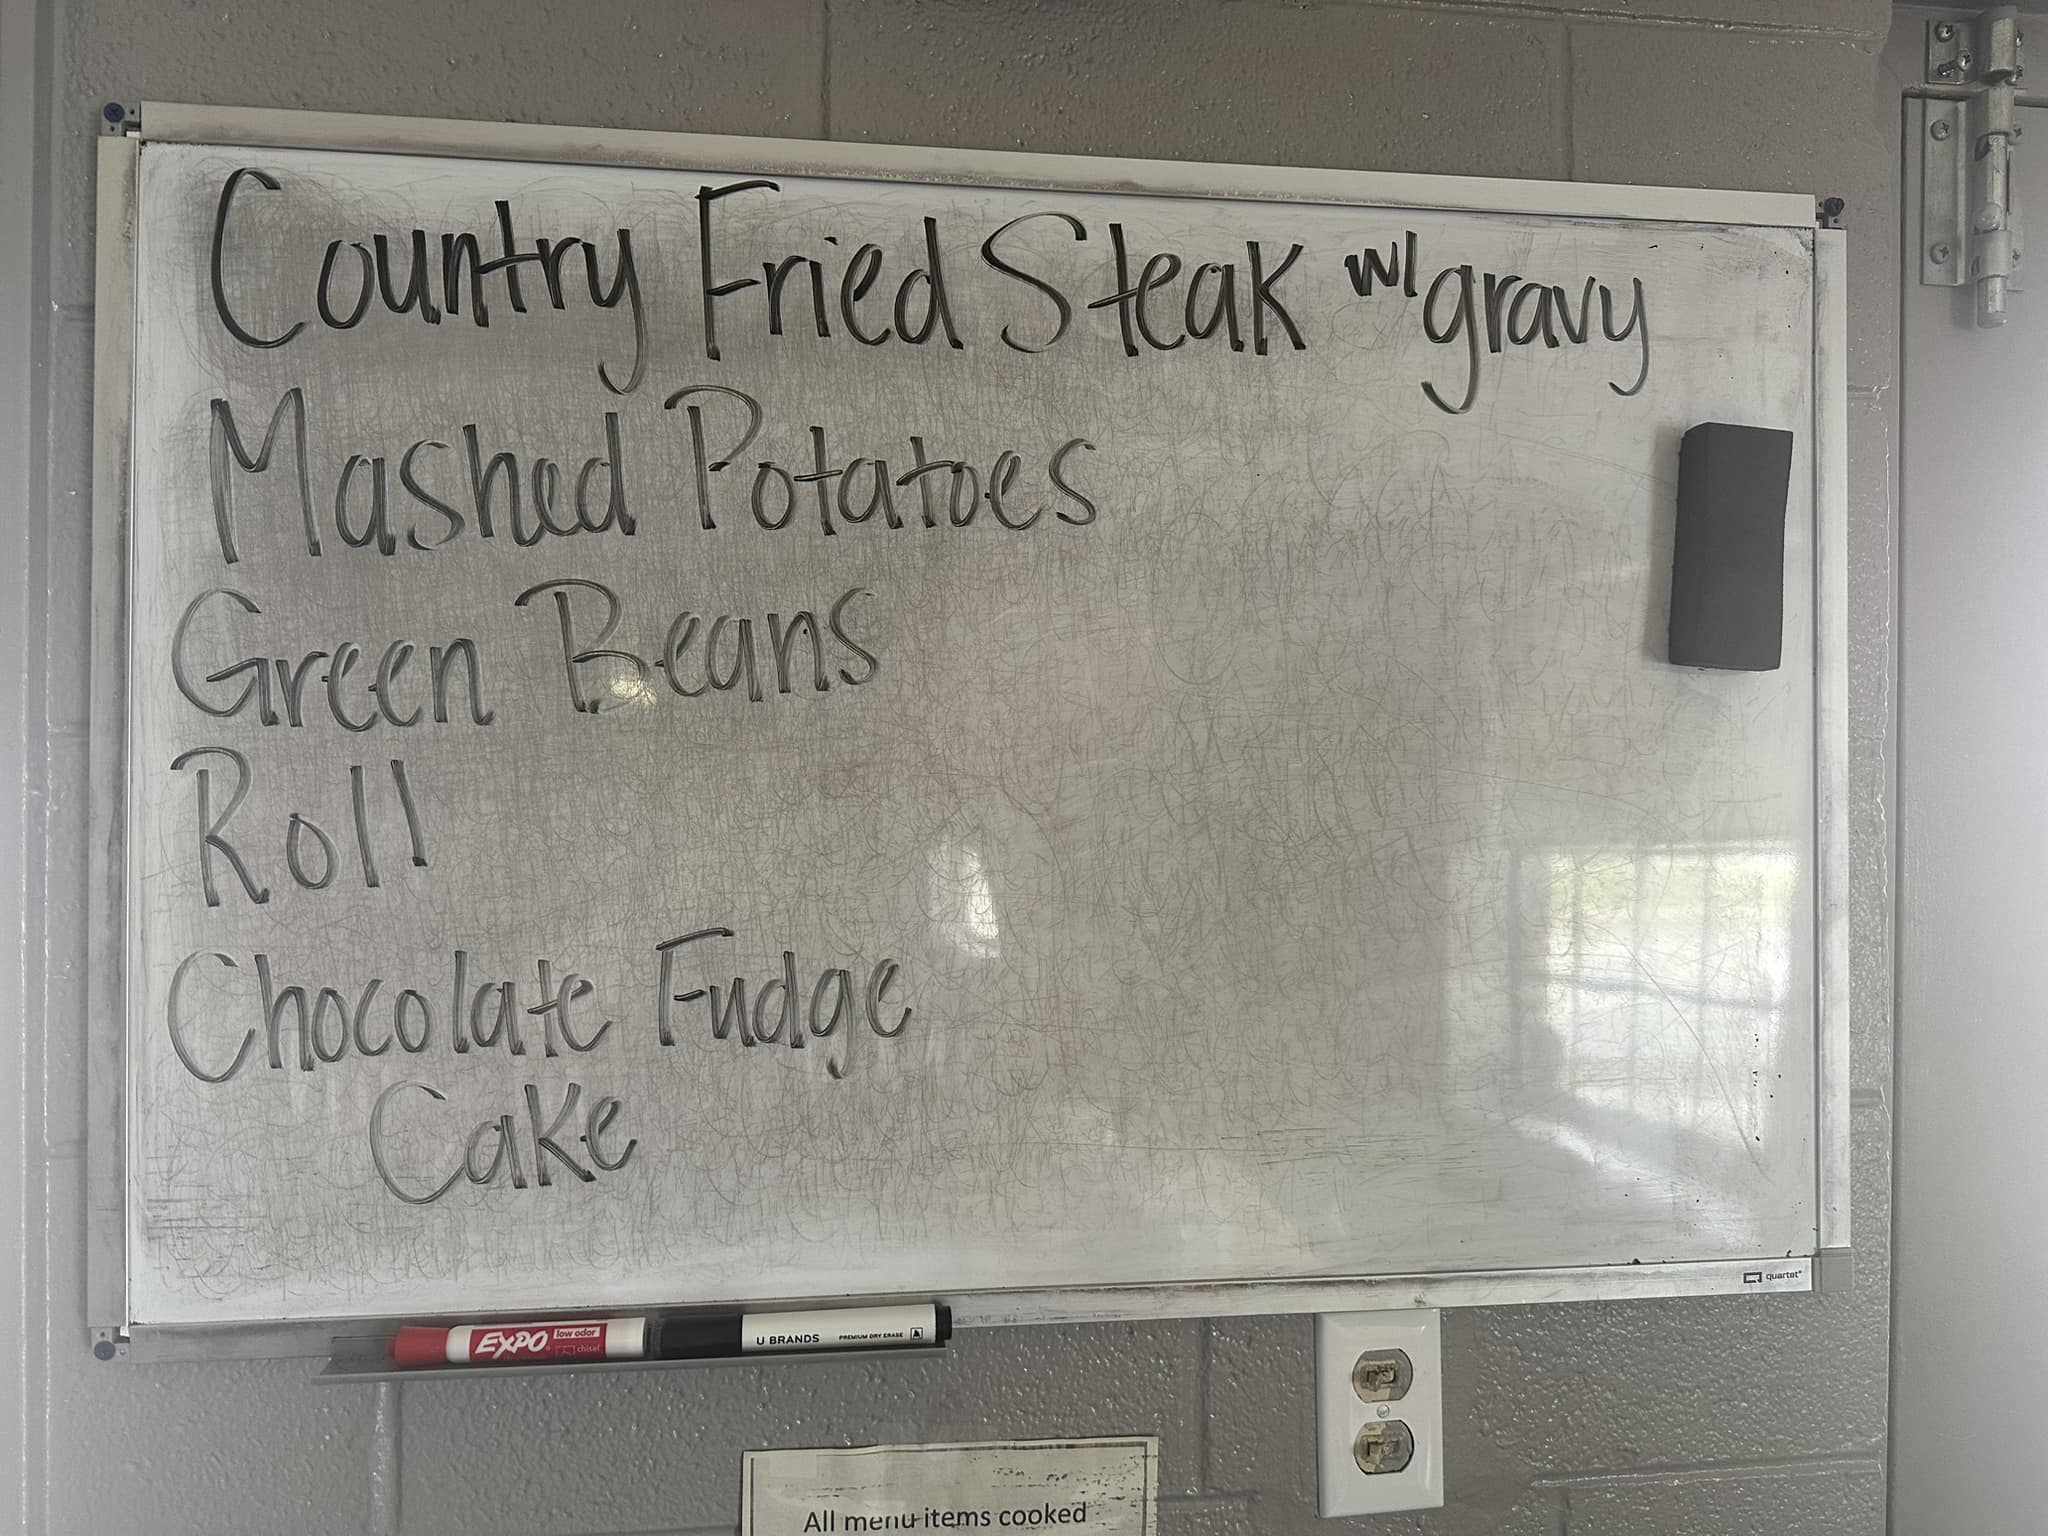 Country Fried Steak w/ gravy
Mashed Potatoes
Green Beans
Roll
Chocolate Fudge
Cake
quartet
EXPO low odor
chisel
U BRANDS PREMIUM DRY ERASE
All menu items cooked